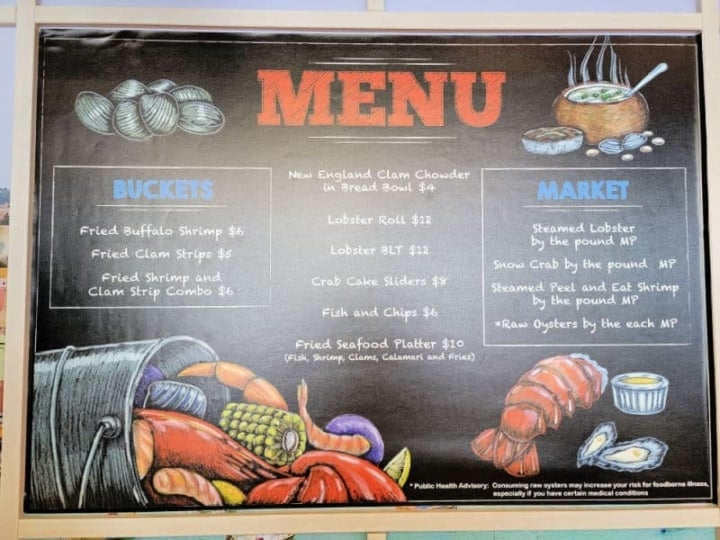 MENU
BUCKETS
Fried Buffalo Shrimp $6
Fried Clam Strips $5
Fried Shrimp and
Clam Strip Combo $6
New England Clam Chowder
in Bread Bowl $4
Lobster Roll $12
Lobster BLT $12
Crab Cake Sliders $8
Fish and Chips $6
Fried Seafood Platter $10
(Fish, Shrimp, Clams, Calamari and Fries)
MARKET
Steamed Lobster
by the pound MP
Snow Crab by the pound MP
Steamed Peel and Eat Shrimp
by the pound MP
*Raw Oysters by the each MP
* Public Health Advisory: Consuming raw oysters may increase your risk for foodborne illness,
especially if you have certain medical conditions